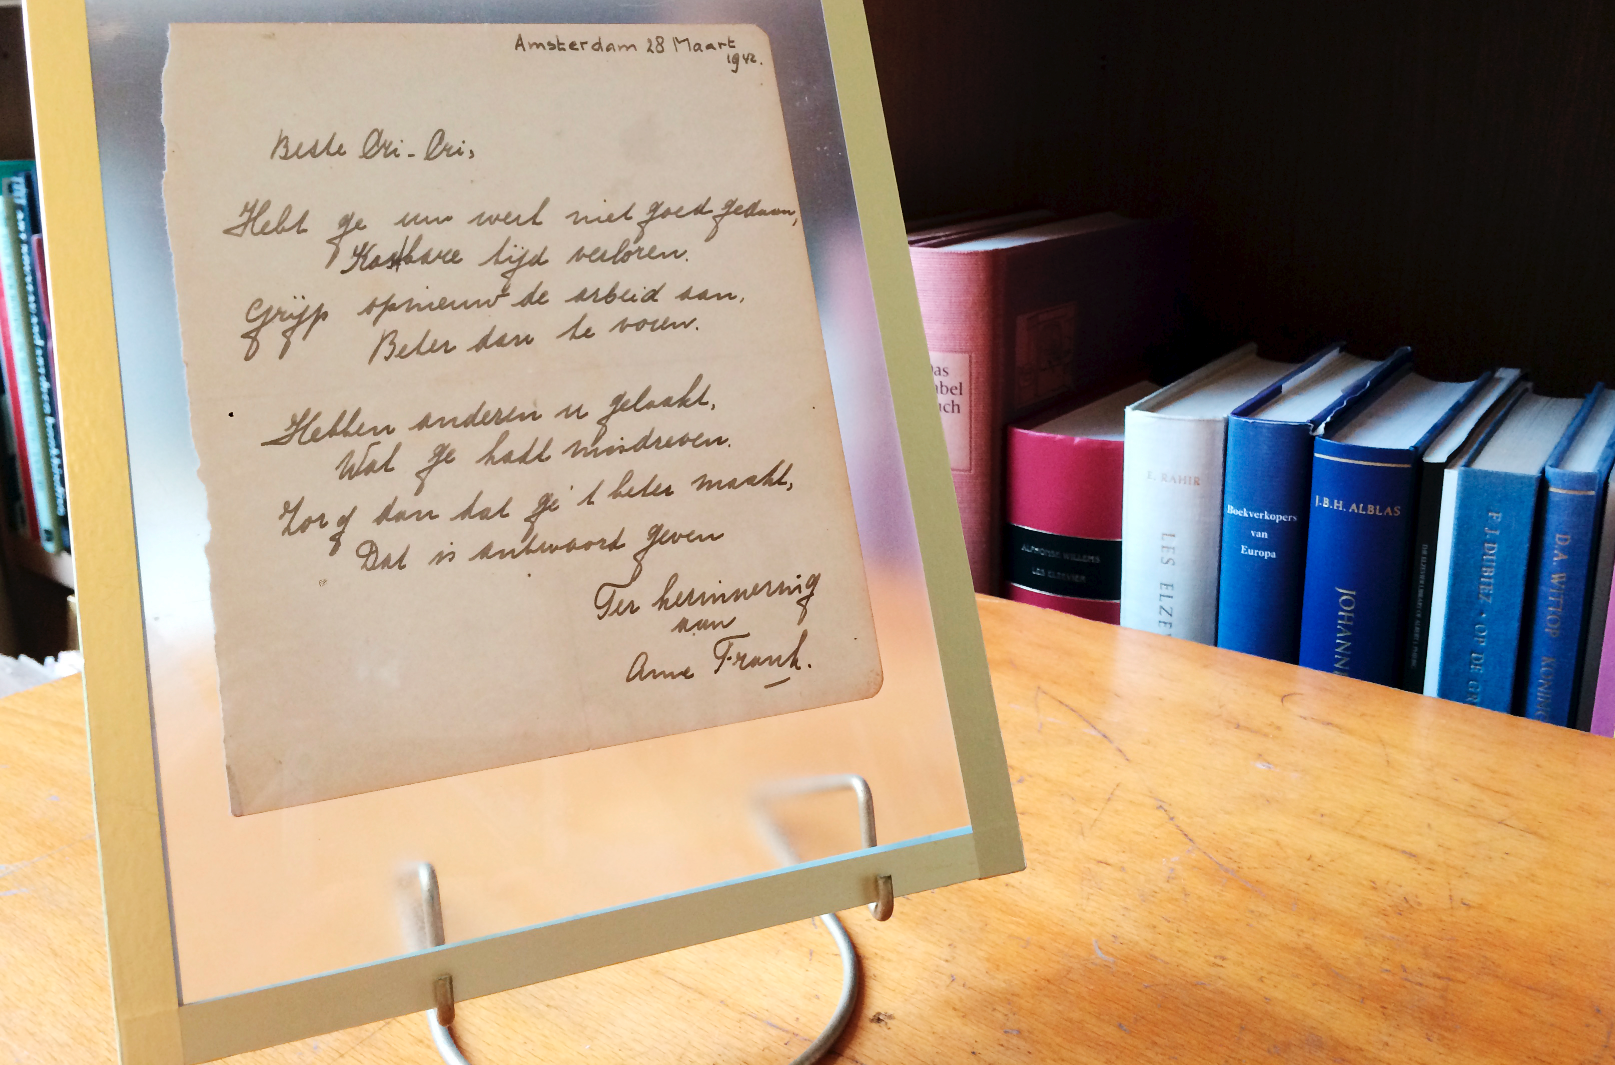 Amsterdam 28 Maart
1942.
Beste Cri-Cri,
Hebt ge uw werk niet goed gedaan,
Kostbare tijd verloren.
Grijp opnieuw de arbeid aan,
Beter dan te voren.
Hebben anderen u gelaakt,
Wat ge hadt misdreven.
Zorg dan dat ge 't beter maakt,
Dat is antwoord geven
Ter herinnering
aan
Anne Frank.
Das
abel
uch
ALPHONSE WILLEMS
LES ELZEVIER
E. RAHIR
LES ELZEV
Boekverkopers
van
Europa
J.B.H. ALBLAS
JOHANN
OP DE GR
D.A. WITTOP KONING